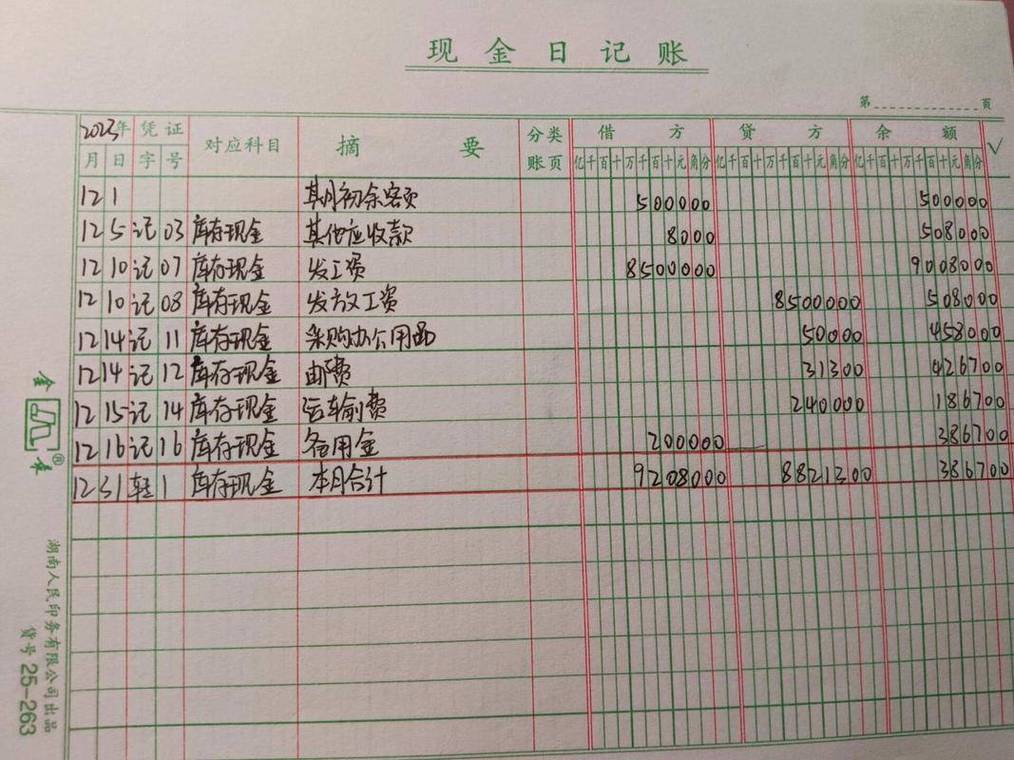 现金日记账
第 页
2023年 凭证 对应科目 摘要 分类账页 借方 贷方 余额 √
月 日 字 号 亿千百十万千百十元角分 亿千百十万千百十元角分 亿千百十万千百十元角分
12 1 期初余额 500000 500000
12 5 记 03 库存现金 其他应收款 8000 508000
12 10 记 07 库存现金 发工资 8500000 9008000
12 10 记 08 库存现金 发放工资 8500000 508000
12 14 记 11 库存现金 采购办公用品 50000 458000
12 14 记 12 库存现金 邮费 31300 426700
12 15 记 14 库存现金 运输费 240000 186700
12 16 记 16 库存现金 备用金 200000 386700
12 31 1 库存现金 本月合计 9208000 8821300 386700
湖南人民印务有限公司出品
货号 25-263